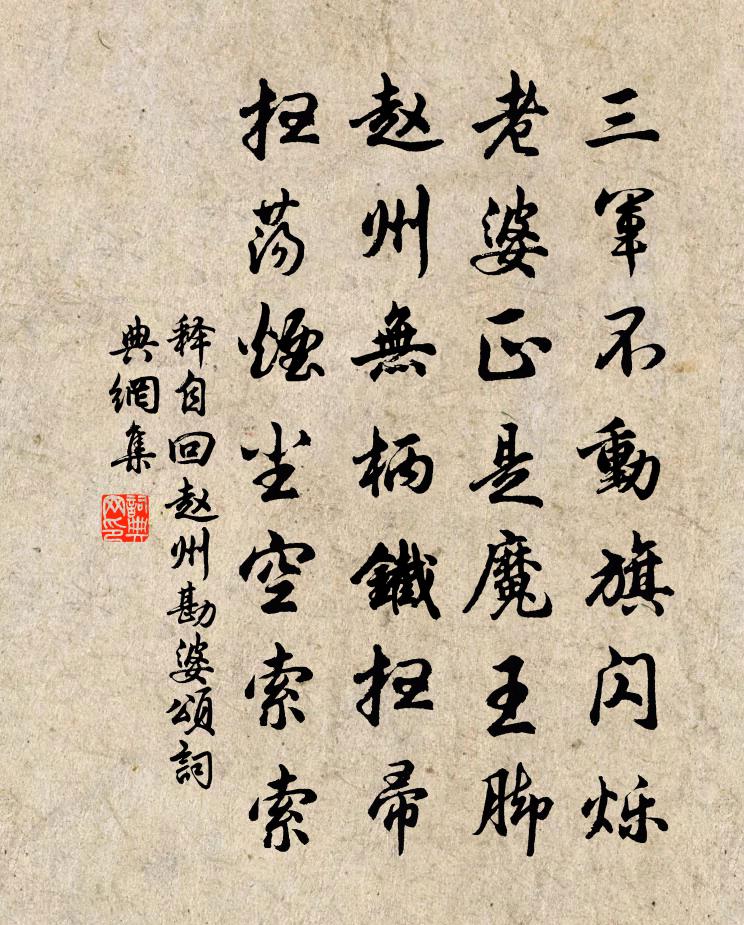 三軍不動旗闪烁
老婆正是魔王脚
赵州無柄鐵扫帚
扫荡煙尘空索索
释自回赵州勘婆頌詞
典網集
詞典網印